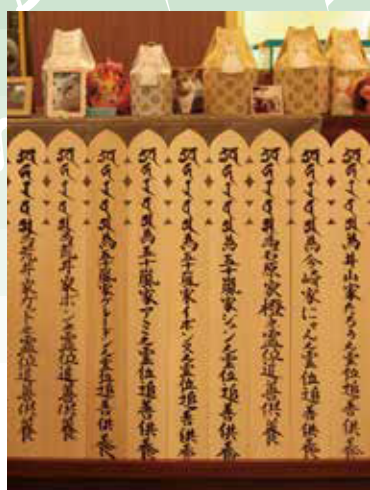 為井山家 之霊位追善供養
為今崎家にゃん之霊位追善供養
為石原家橙之霊位追善供養
為五十嵐家ジャン之霊位追善供養
為五十嵐家イボンヌ之霊位追善供養
為五十嵐家アミ之霊位追善供養
為五十嵐家 之霊位追善供養
為荒井家ボン之霊位追善供養
為荒井家 之霊位追善供養